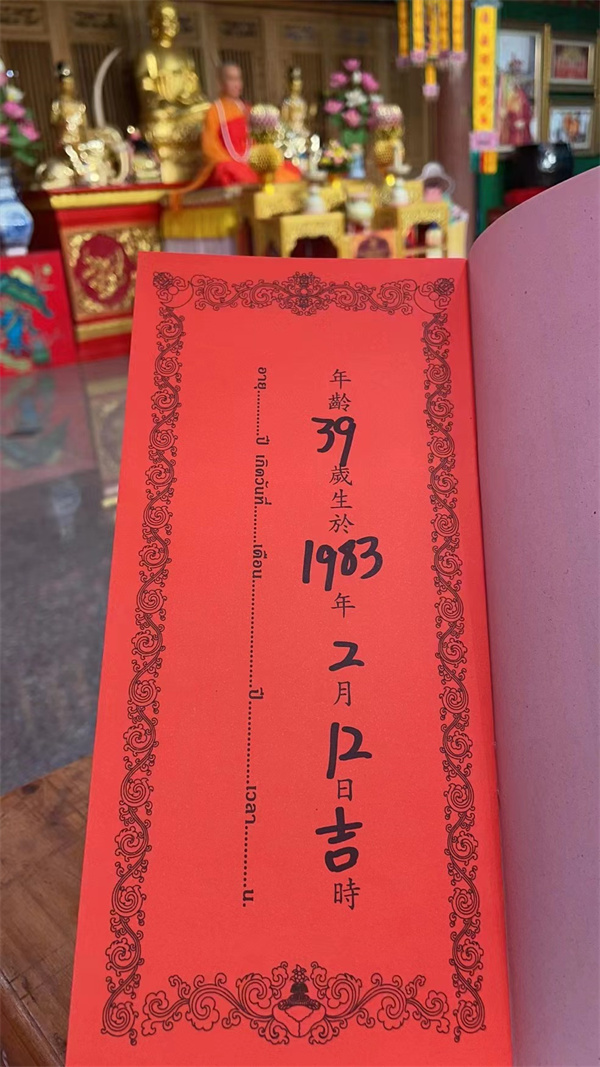 年齡39歲生於1983年2月12日吉時
อายุ..........ปี เกิดวันที่..........เดือน....................ปี..............เวลา............น.